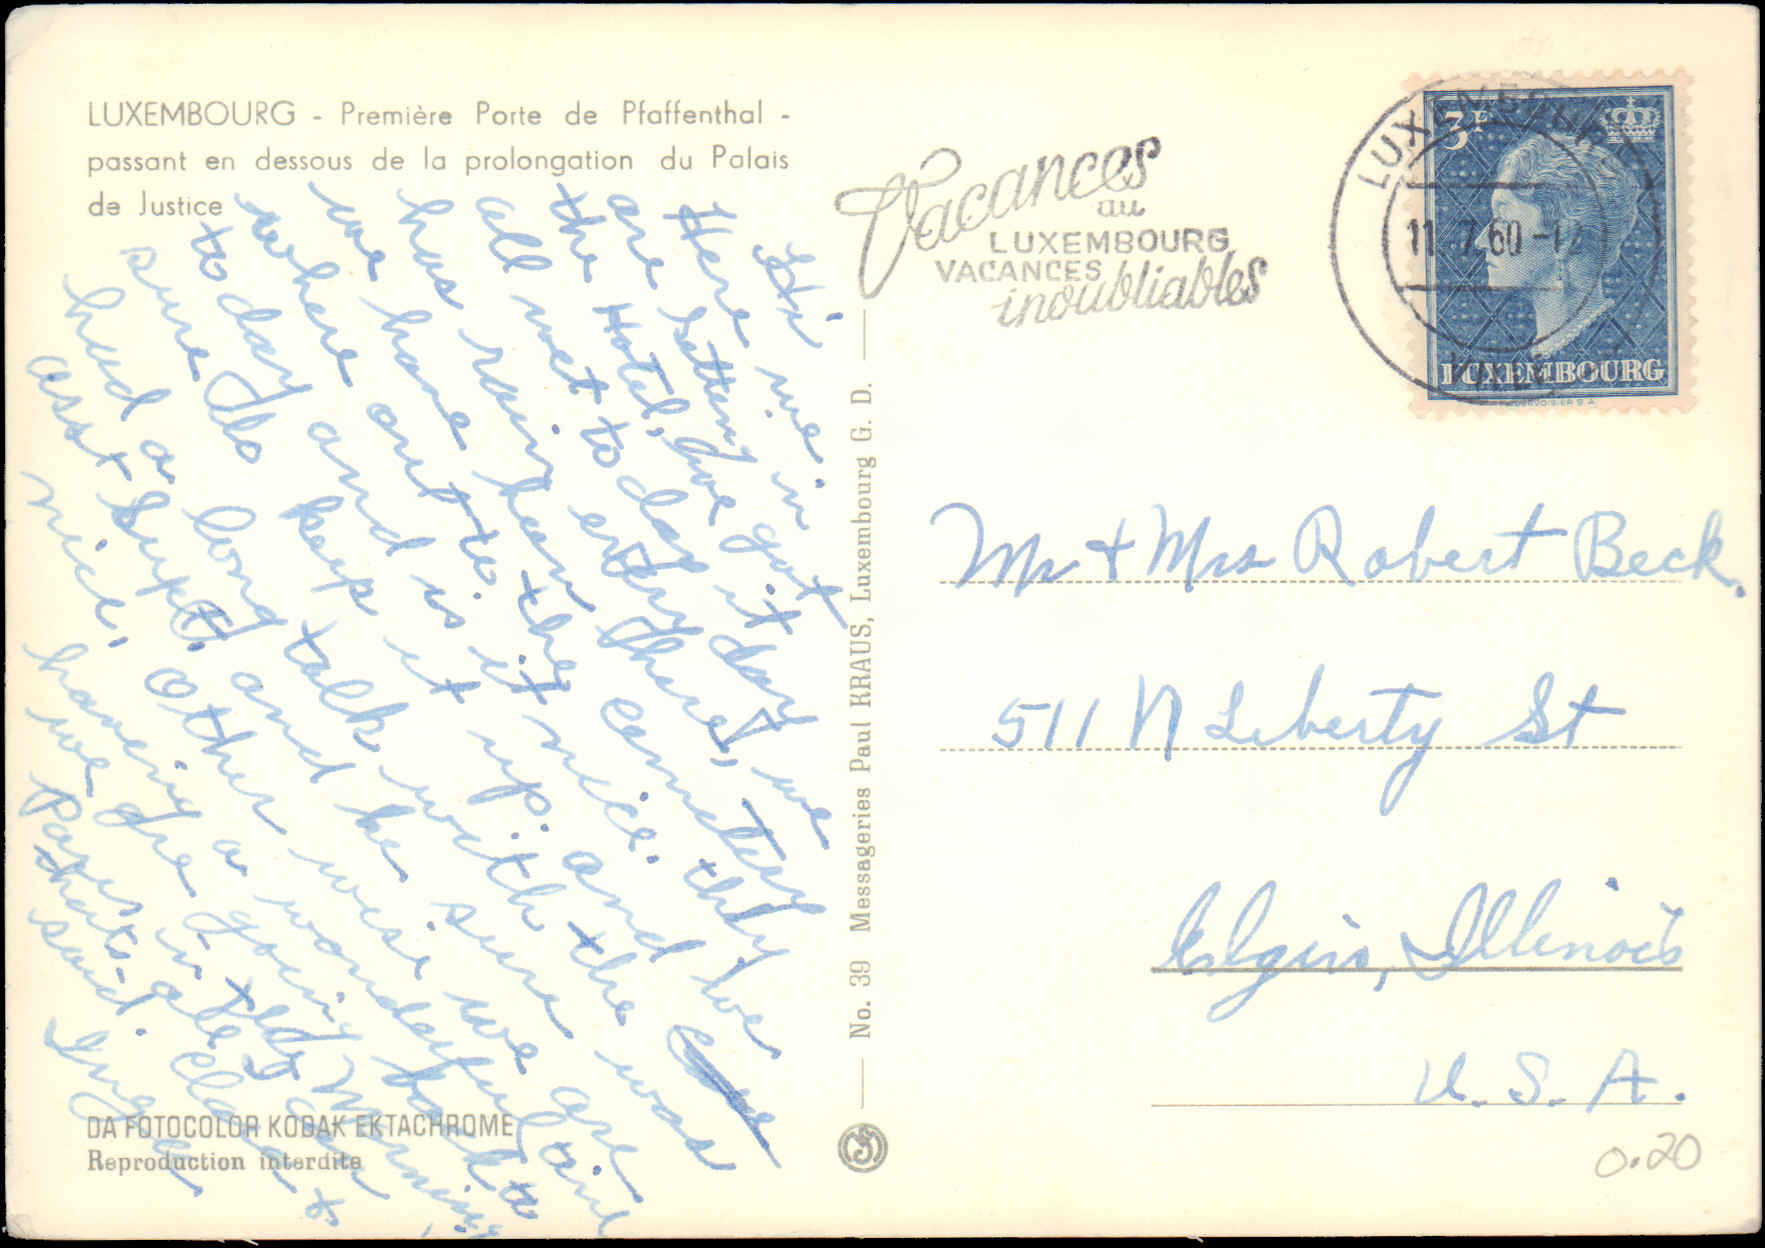 LUXEMBOURG - Première Porte de Pfaffenthal -
passant en dessous de la prolongation du Palais
de Justice
Hi
Here we
are Setting in
the Hotel, we got
all wet to day it
has rain every day
we have been there, we
where out to the cemetery
to day and is it nice. they
sure do keep it up. and we
had a long talk with the
asst Supt. and he sure was
nice. Other wise we are
haveing a wonderful time
we are going back to
Paris in the Morning,
thats all I can
said. Clara +
Inga
DA FOTOCOLOR KODAK EKTACHROME
Reproduction interdite
No. 39 Messageries Paul KRAUS, Luxembourg G. D.
Vacances
au
LUXEMBOURG
VACANCES
inoubliables
LUXEMBOURG
11.7.60-1
3F
LUXEMBOURG
Mr + Mrs Robert Beck.
511 N Liberty St
Elgin, Illinois
U. S. A.
0.20